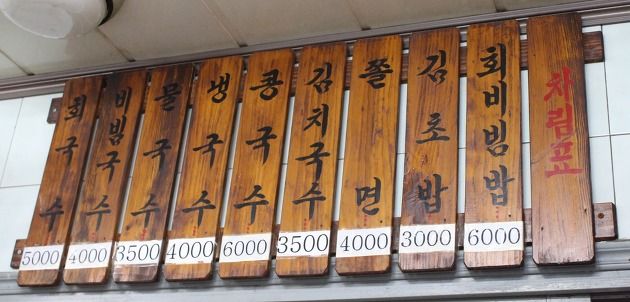 회국수
5000
비빔국수
4000
물국수
3500
냉국수
4000
콩국수
6000
김치국수
3500
쫄면
4000
김초밥
3000
회비빔밥
6000
차림표